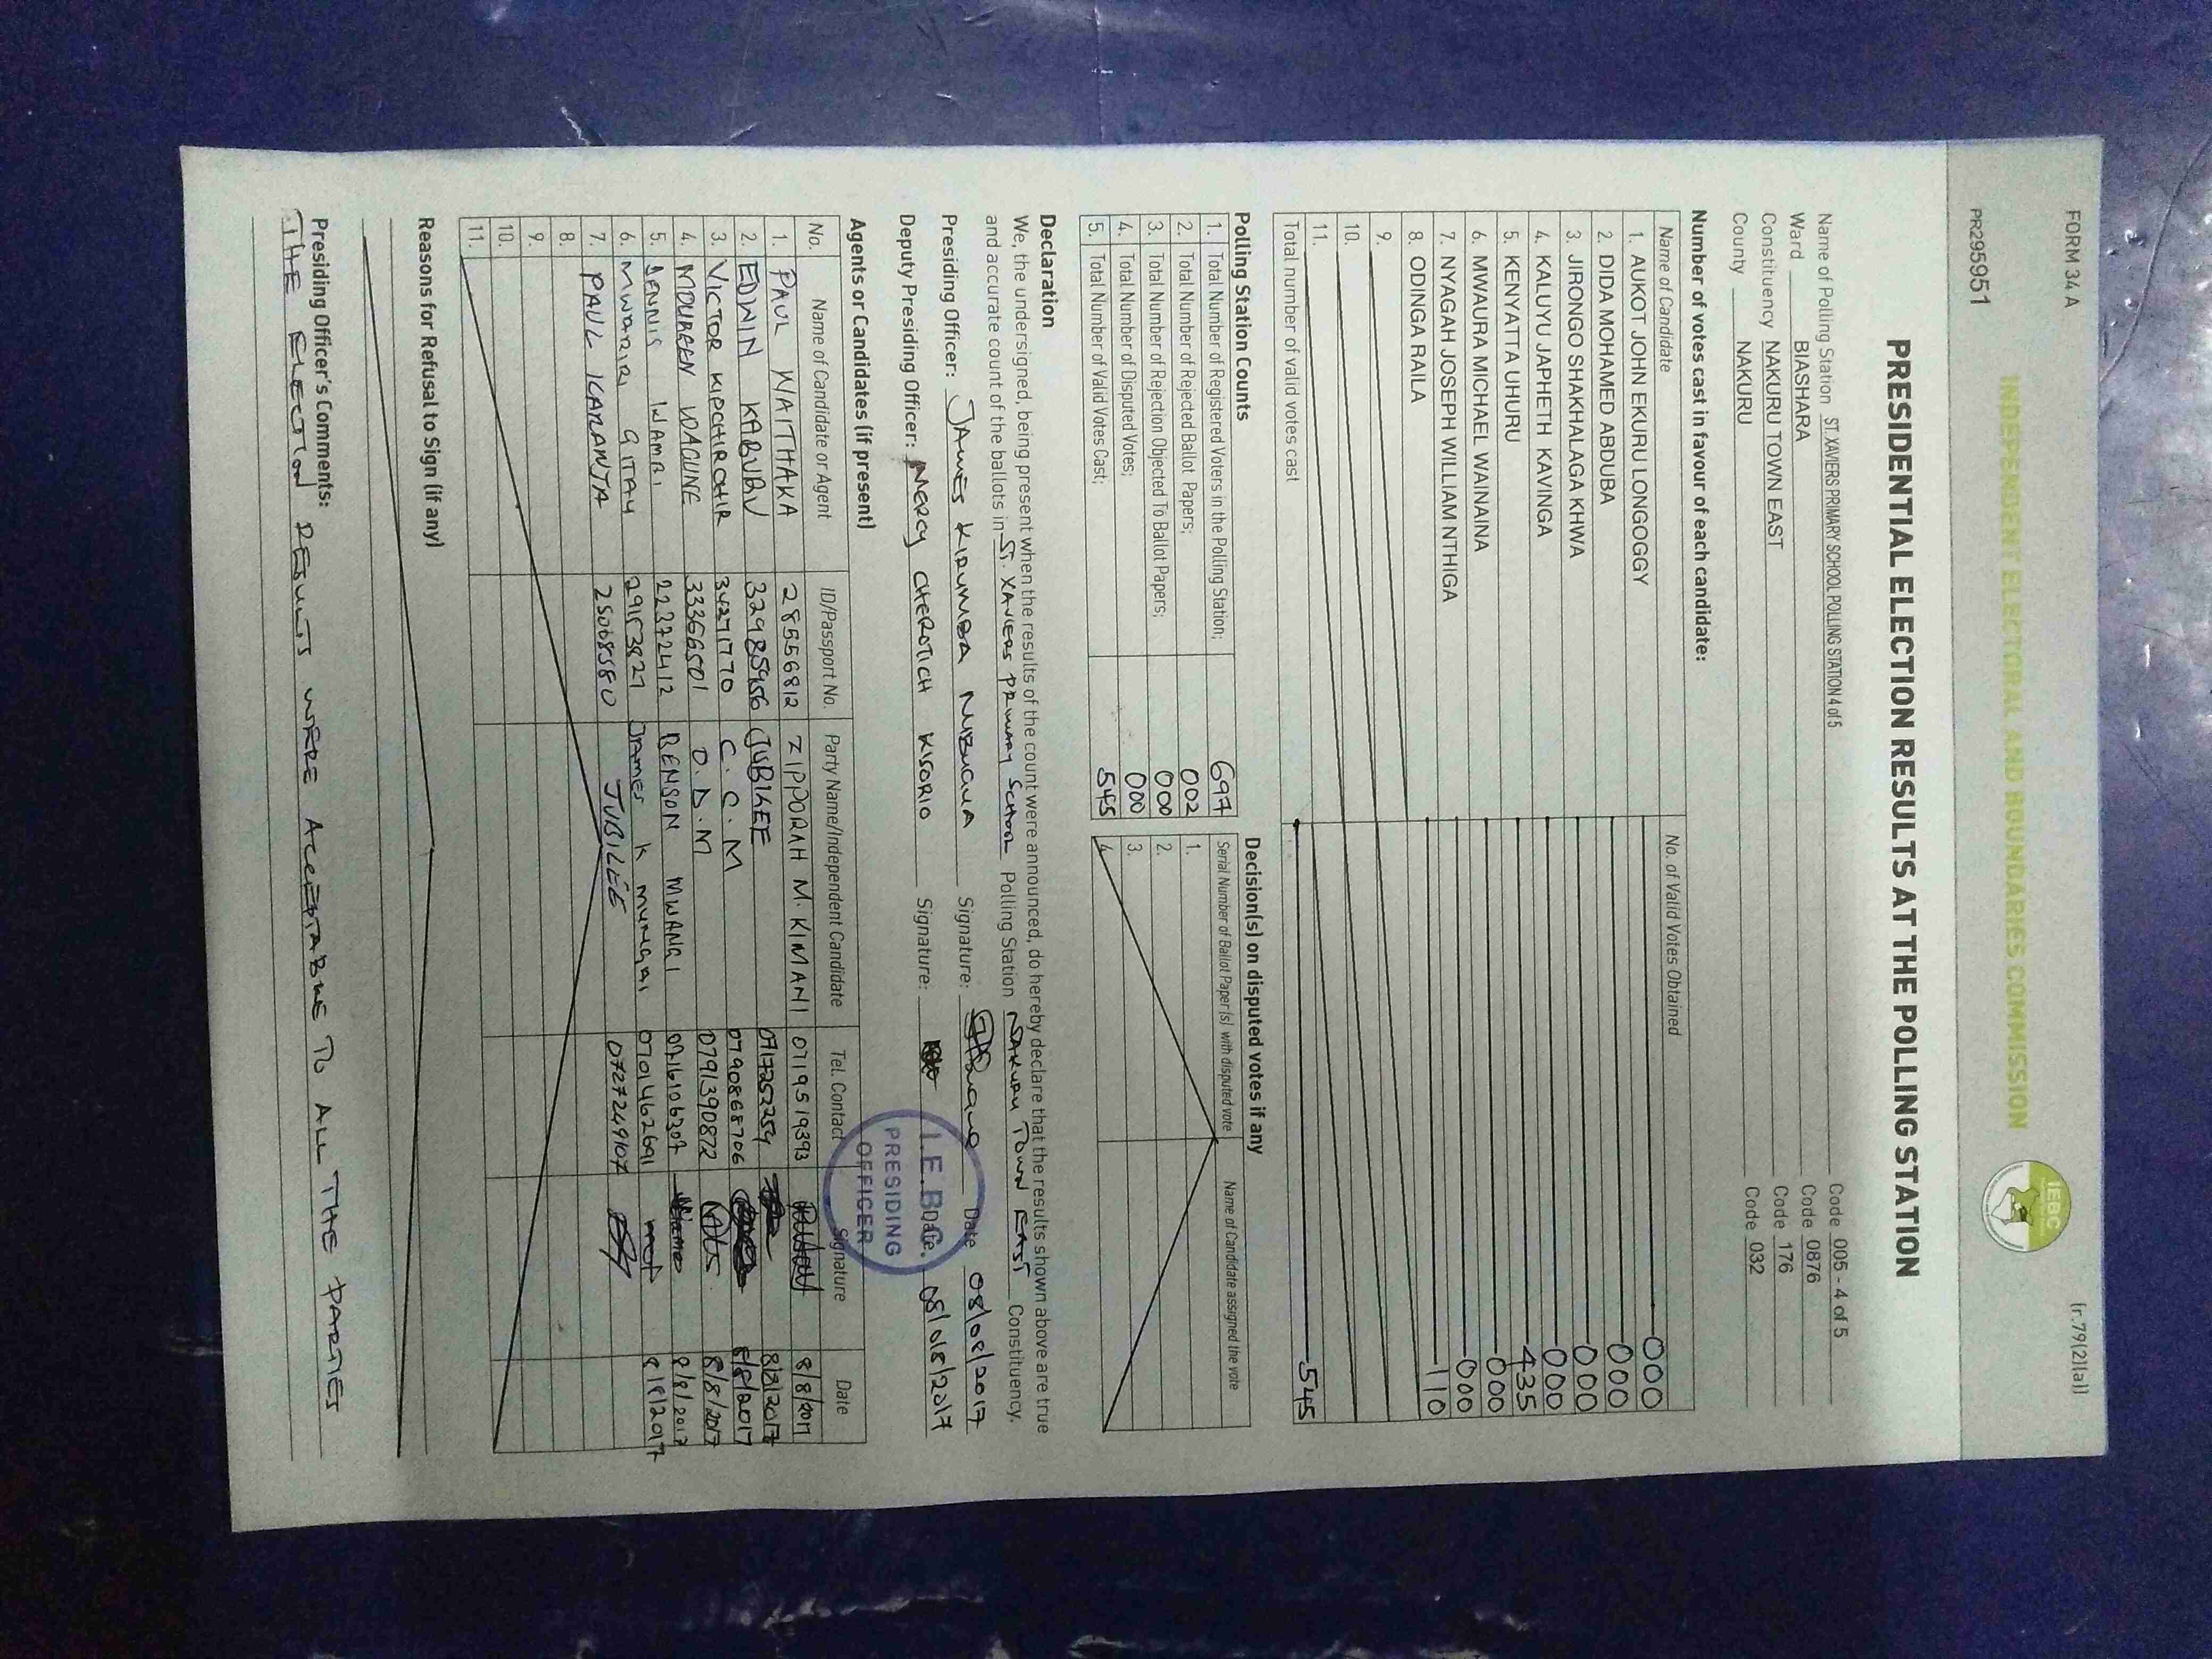 FORM 34 A
(r.79(2)(a))
PR295951
INDEPENDENT ELECTORAL AND BOUNDARIES COMMISSION
IEBC
PRESIDENTIAL ELECTION RESULTS AT THE POLLING STATION
Name of Polling Station ST. XAVIERS PRIMARY SCHOOL POLLING STATION 4 of 5 Code 005 - 4 of 5
Ward BIASHARA Code 0876
Constituency NAKURU TOWN EAST Code 176
County NAKURU Code 032
Number of votes cast in favour of each candidate:
Name of Candidate No. of Valid Votes Obtained
1. AUKOT JOHN EKURU LONGOGGY 000
2. DIDA MOHAMED ABDUBA 000
3. JIRONGO SHAKHALAGA KHWA 000
4. KALUYU JAPHETH KAVINGA 000
5. KENYATTA UHURU 435
6. MWAURA MICHAEL WAINAINA 000
7. NYAGAH JOSEPH WILLIAM NTHIGA 000
8. ODINGA RAILA 110
9.
10.
11.
Total number of valid votes cast 545
Polling Station Counts
1. Total Number of Registered Voters in the Polling Station; 697
2. Total Number of Rejected Ballot Papers; 002
3. Total Number of Rejection Objected To Ballot Papers; 000
4. Total Number of Disputed Votes; 000
5. Total Number of Valid Votes Cast; 545
Decision(s) on disputed votes if any
Serial Number of Ballot Paper(s) with disputed vote Name of Candidate assigned the vote
1.
2.
3.
4.
Declaration
We, the undersigned, being present when the results of the count were announced, do hereby declare that the results shown above are true
and accurate count of the ballots in ST. XAVIERS PRIMARY SCHOOL Polling Station NAKURU TOWN EAST Constituency.
Presiding Officer: JAMES KIRUMBA Signature: Date 08/08/2017
Deputy Presiding Officer: MERCY CHEROTICH KISORIO Signature: Date. 08/08/2017
I.E.B.C.
PRESIDING
OFFICER
Agents or Candidates (if present)
No. Name of Candidate or Agent ID/Passport No. Party Name/Independent Candidate Tel. Contact Signature Date
1. PAUL WAITHAKA 28556812 ZIPPORAH M. KIMANI 0719519393 8/8/2017
2. EDWIN KABURU 32985956 JUBILEE 0717252259 8/8/2017
3. VICTOR KIPCHIRCHIR 34271770 C.C.M 0790868706 8/8/2017
4. MOUREEN 33366501 O.D.M 0791390872 8/8/2017
5. DENNIS WAMBI 22372412 BENSON MWANGI 8/8/2017
6. MWARIRI GITAU 29153827 James K Mungai 0701462691 8/8/2017
7. PAUL KARANJA 25068580 JUBILEE 0727249107
8.
9.
10.
11.
Reasons for Refusal to Sign (if any)
Presiding Officer's Comments:
THE ELECTION RESULTS WERE ACCEPTABLE TO ALL THE PARTIES